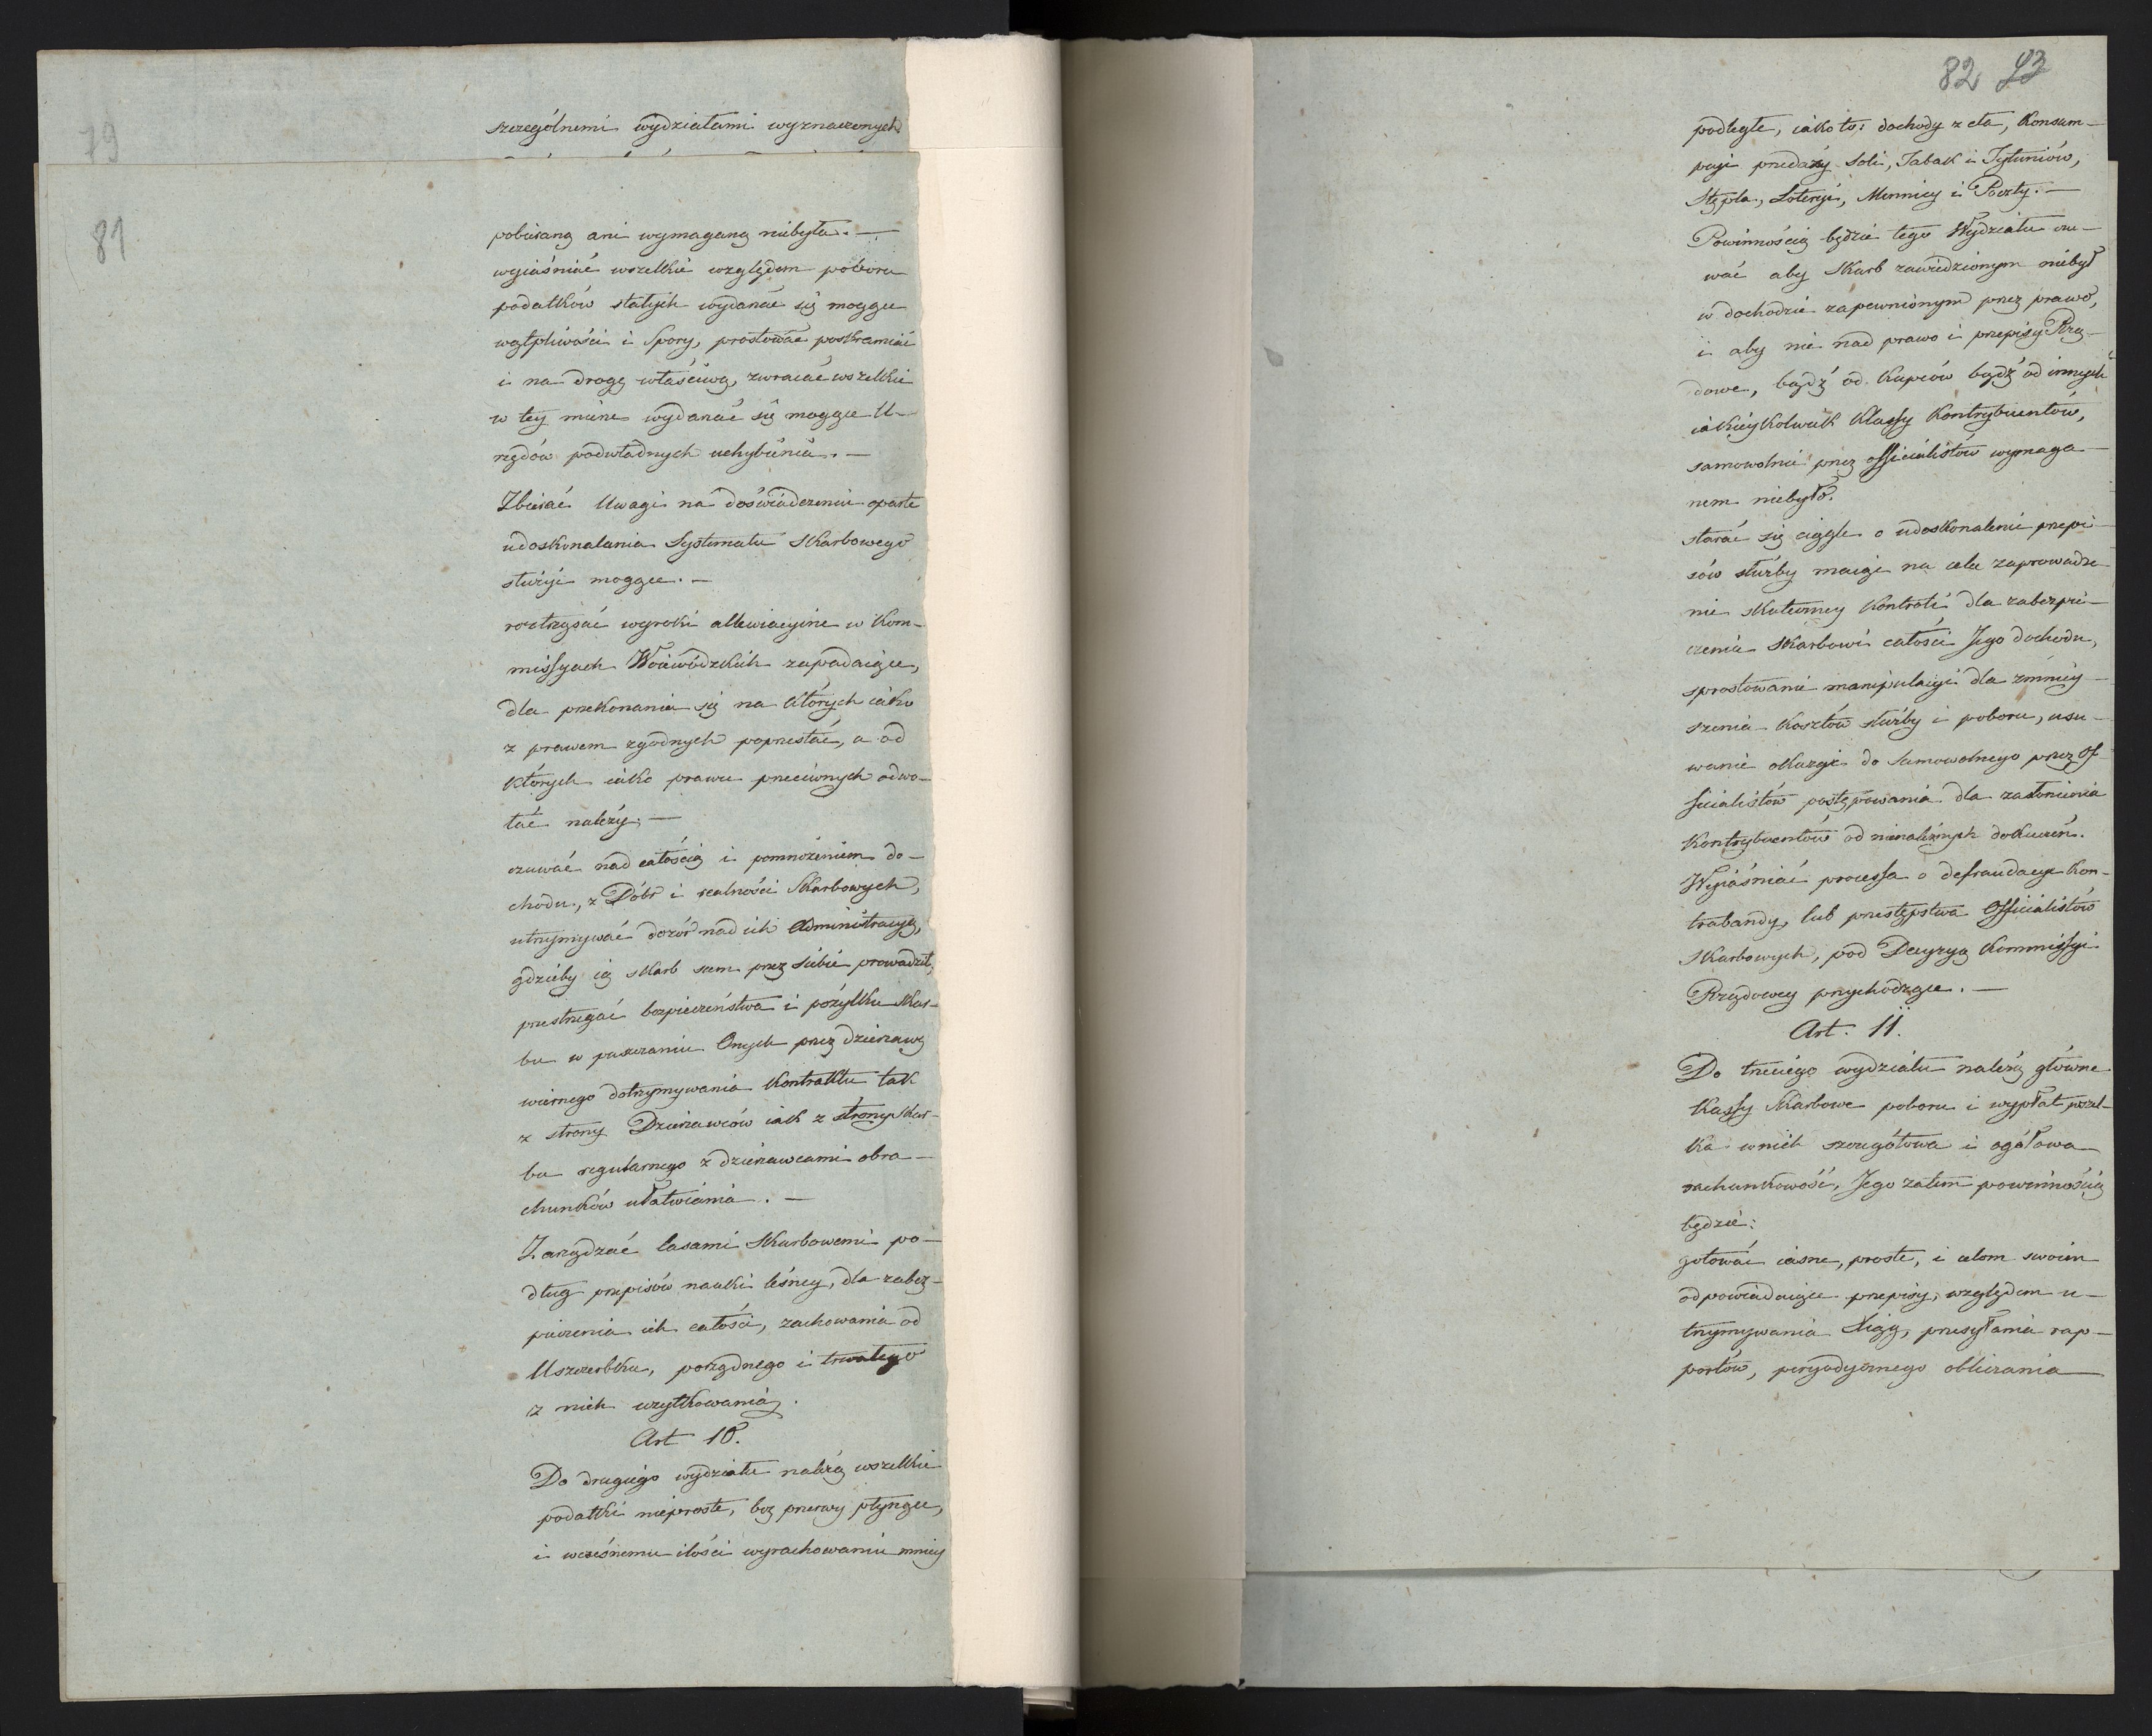 79
szczególnemi wydziałami wyznaczonych
81
pobieraną ani wymaganą niebyła. —
wyiaśniać wszelkie względem poboru
podatków stałych wydarzać się mogące
wątpliwości i Spory, prostować poskramiać
i na drogę właściwą, zwracać wszelkie
w tey mierze wydarzać się mogące U-
rzędów podwładnych uchybienia. —
Zbierać Uwagi na doświadczeniu oparte
udoskonalania Systematu Skarbowego
służyć mogące. —
roztrząsać wyroki allewiacyine w Kom-
missyach Woiewódzkich zapadaiące,
dla przekonania się na których iako
z prawem zgodnych poprzestać, a od
których iako prawu przeciwnych odwo-
łać należy; —
czuwać nad całością i pomnożeniem do-
chodu, z Dóbr i realności Skarbowych,
utrzymywać dozór nad ich Administracyą,
gdzieby ią skarb sam przez siebie prowadził,
przestrzegać bezpieczeństwa i pożytku skar-
bu w puszczaniu Onych przez dzierzawę
wiernego dotrzymywania Kontraktu tak
z strony Dzierzawców iak z strony skar-
bu regularnego z dzierzawcami obra-
chunków ułatwiania. —
Zarządzać lasami Skarbowemi po-
dług przepisów nauki leśney, dla zabez-
pieczenia ich całości, zachowania od
Uszczerbku, porządnego i trwałego
z nich użytkowania.
Art 10.
Do drugiego wydziału należą wszelkie
podatki nieproste, bez przerwy płynące,
i wczesnemu ilości wyrachowaniu mniey
82 93
podległe, iako to: dochody z cła, Konsum-
pcyi przedaży Soli, Tabak i Tytuniów,
Stępla, Loteryi, Mennicy i Poczty. —
Powinnością będzie tego Wydziału czu-
wać aby Skarb zawiedzionym niebył
w dochodzie zapewnionym przez prawo,
i aby nic nad prawo i przepisy Rzą-
dowe, bądź od Kupców bądź od innych
iakieykolwiek Klassy Kontrybuentów,
samowolnie przez officialistów wymaga-
nem niebyło.
starać się ciągle o udoskonalenie przepi-
sów służby maiąc na celu zaprowadze-
nie skuteczney Kontroli dla zabezpie-
czenia skarbowi całości Jego dochodu,
sprostowanie manipulacyi dla zmniey-
szenia kosztów służby i poboru, usu-
wanie okazyi do samowolnego przez Of-
ficialistów postępowania dla zasłonienia
Kontrybuentów od nienależnych dokuczeń.
Wyiaśniać processa o defraudacye Kon-
trabandy, lub przestępstwa Officialistów
Skarbowych, pod Decyzyą Kommissyi
Rządowey przychodzące. —
Art. 11.
Do trzeciego wydziału należą główne
Kassy Skarbowe poboru i wypłat wszel-
ka w nich szczegółowa i ogółowa
rachunkowość, Jego zatem powinnością
będzie:
gotować iasne, proste, i celom swoim
odpowiadaiące przepisy, względem u-
trzymywania Xiąg, przesyłania rap-
portów, peryodycznego obliczania